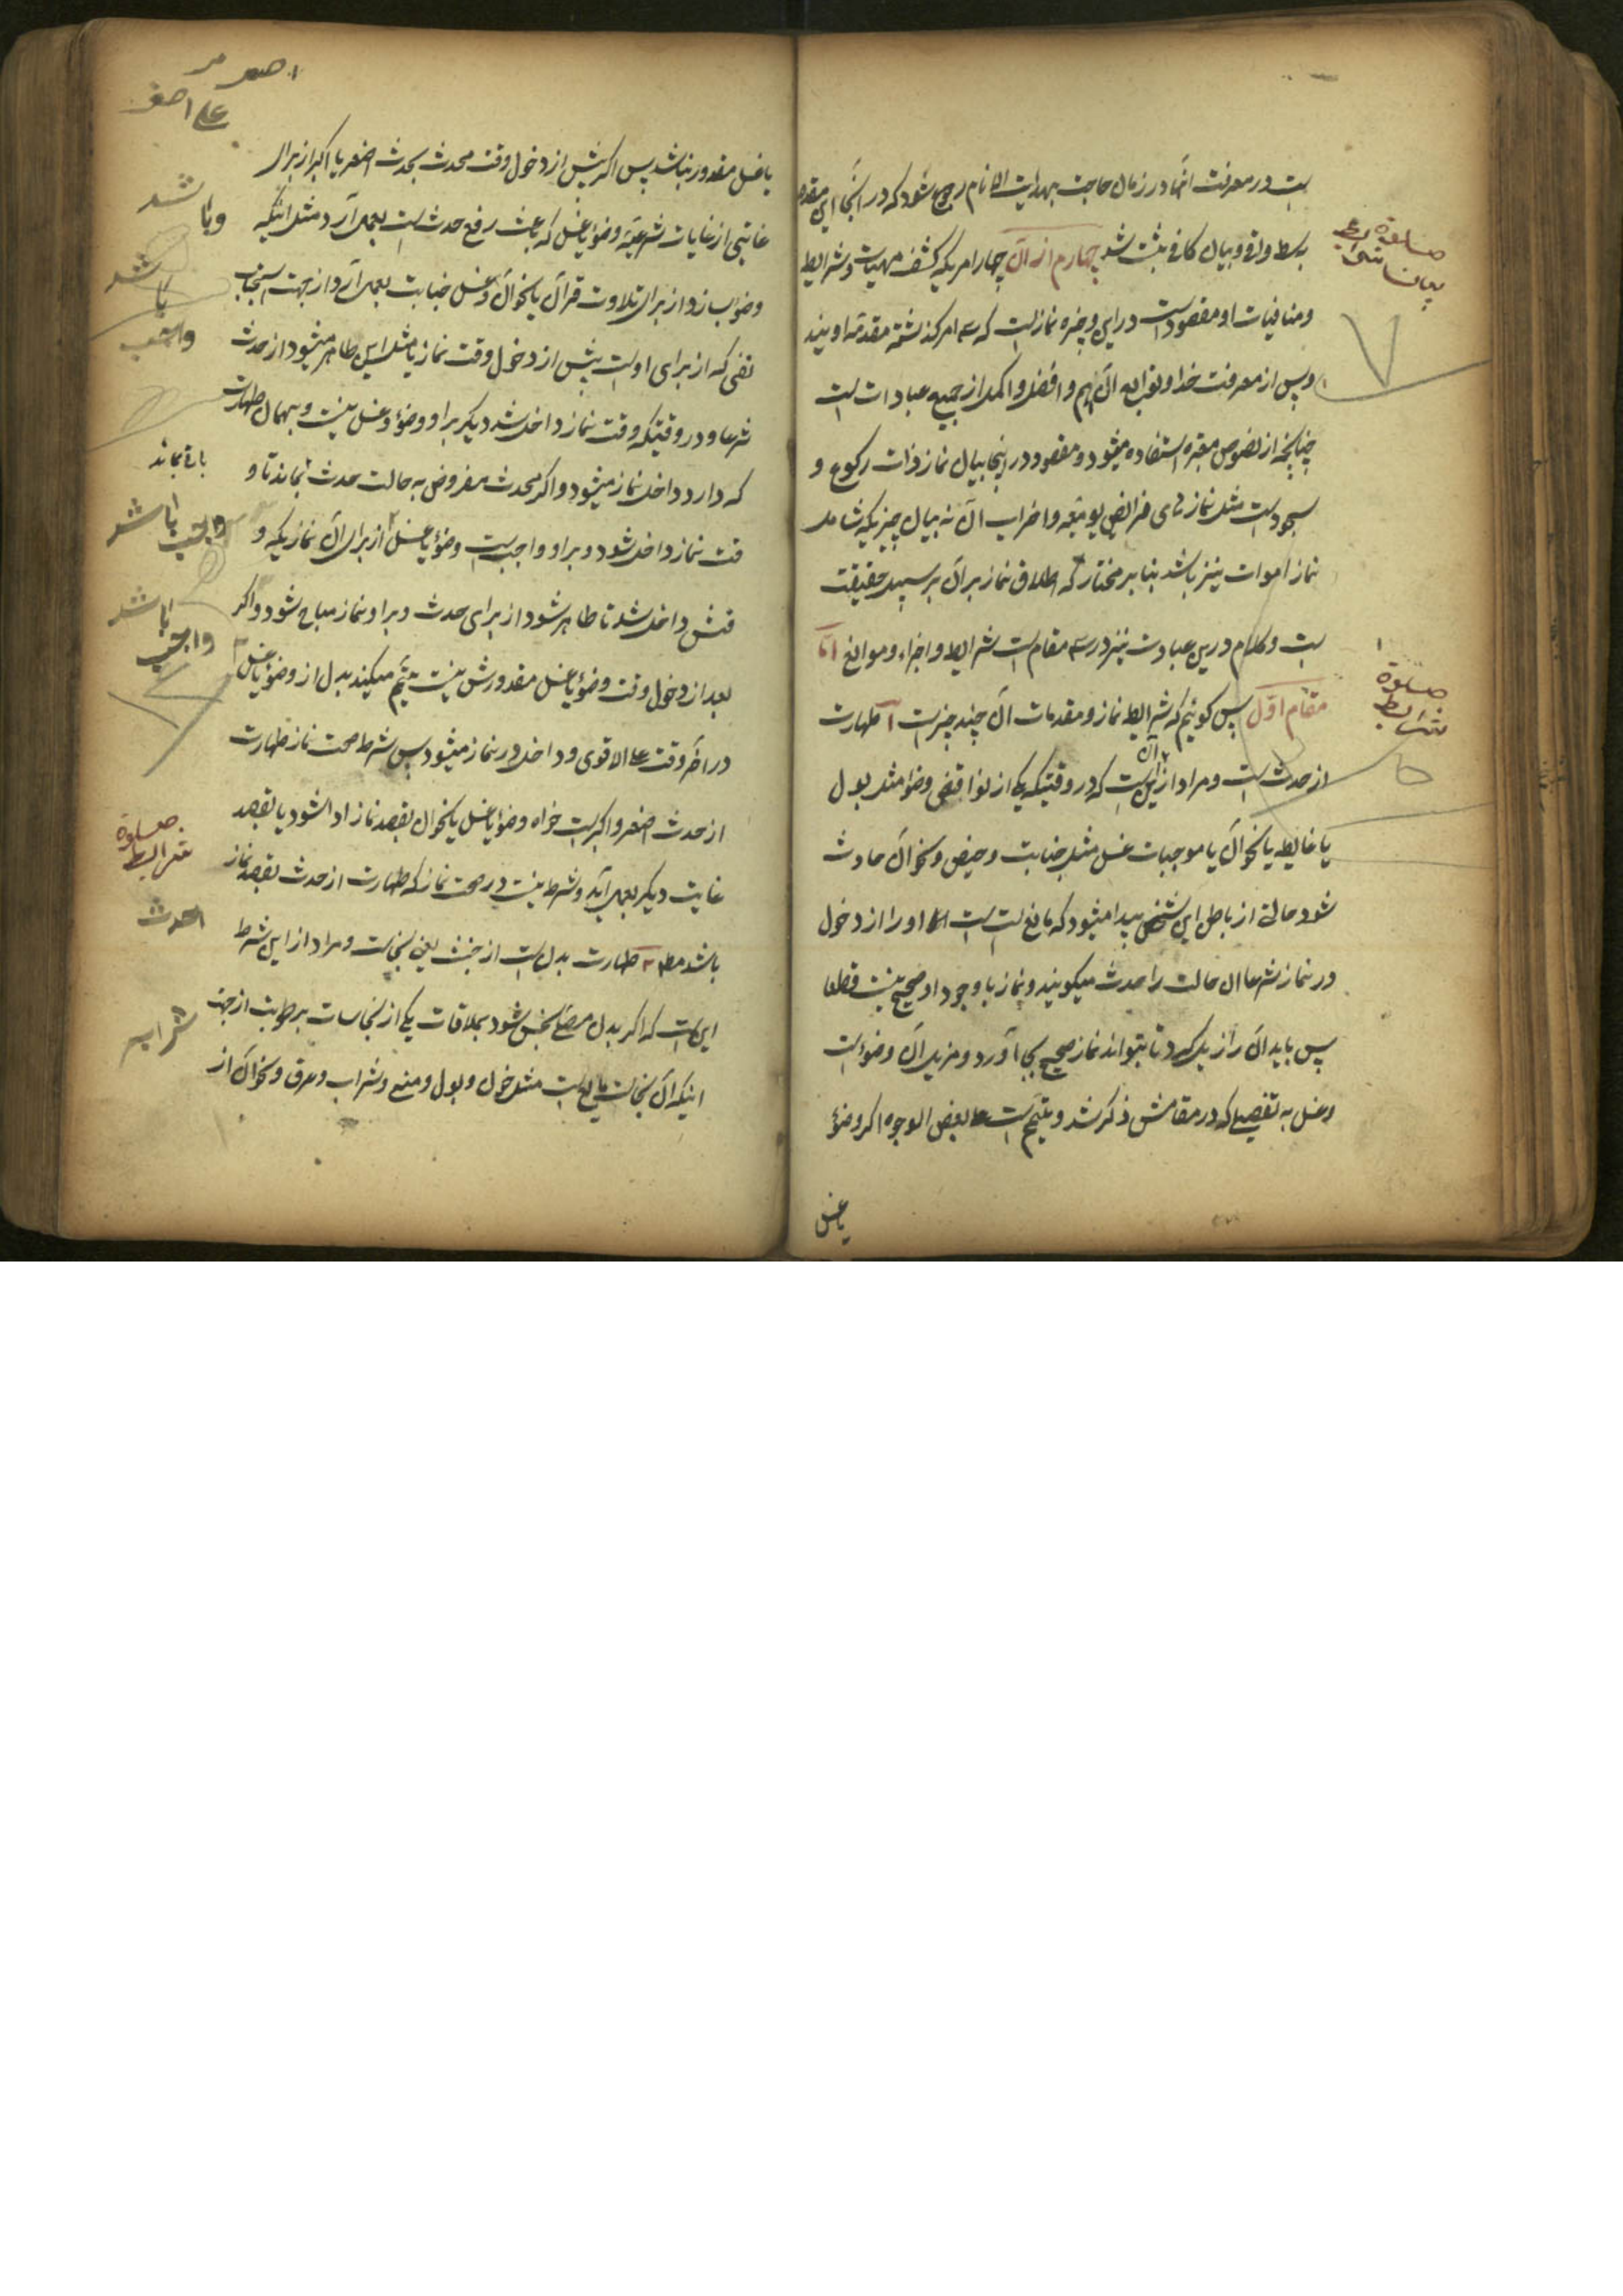 ست در معرفت آنها در زمان حاجت بهدایت الانام رجوع شود که در آنجا این مقدمه
بسط وافی و بیان کافی ثبت شد چهارم از آن چهار امریکه کشف مهیات و شرایط
و منافیات او مقصود است در این وجیزه نماز است که سه امر گذشته مقدمه اویند
و پس از معرفت خدا و نواب او آن اهم و افضل و اکمل از جمیع عبادات است
چنانچه از نصوص معتبره استفاده میشود و مقصود در اینجا بیان نماز ذات رکوع و
سجود است مثل نماز های فرائض یومیه و اضراب آن نه بیان چیزیکه شامل
نماز اموات نیز باشد بنا بر مختار که اطلاق نماز بر آن بر سبیل حقیقت
ست و کلام درین عبادت نیز در سه مقام است شرایط و اجزاء و موانع اما
مقام اول پس گوئیم که شرایط نماز و مقدمات آن چند چیز است ١ طهارت
از حدث است و مراد از این است که در وقتیکه یکی از نواقض وضوء مثل بول
یا غایط یا نحو آن یا موجبات غسل مثل جنابت و حیض و نحو آن حادث
شود حالتی از باطن این شخص پیدا میشود که مانع است او را از دخول
در نماز شرعا آن حالت را حدث میگویند و نماز با وجود او صحیح نیست قطعا
پس باید آن را زایل کرد تا بتواند نماز صحیح بجا آورد و مزیل آن وضوء است
و غسل به تفصیلی که در مقامش ذکر شد و تیمم است علی بعض الوجوه اگر وضوء
یا غسل
صلوة
شرایط
یا غسل مقدور نباشد پس اگر پیش از دخول وقت محدث بحدث اصغر یا اکبر از برای
غایتی از غایات شرعیه وضوء یا غسل که باعث رفع حدث است بعمل آرد مثل اینکه
وضوء بسازد از برای تلاوت قرآن یا نحو آن و غسل جنابت بعمل آرد از جهت استحباب
نفسی که از برای اوست پیش از دخول وقت نماز یا مثل این طاهر میشود از حدث
شرعا و در وقتیکه وقت نماز داخل شد دیگر بر او وضوء و غسل نیست و بهمان طهارت
که دارد داخل نماز میشود و اگر محدث مفروض به حالت حدث بماند تا و
قت نماز داخل شود و بر او واجب است وضوء یا غسل از برای آن نمازیکه و
قتش داخل شد تا طاهر شود از برای حدث و بر او نماز مباح شود و اگر
بعد از دخول وقت وضوء یا غسل مقدورش نیست تیمم میکند بدل از وضوء یا غسل
در آخر وقت علی الاقوی و داخل در نماز میشود پس شرط صحت نماز طهارت
از حدث اصغر و اکبر است خواه وضوء یا غسل یا نحو آن بقصد نماز ادا شود یا بقصد
غایت دیگر بعمل آید و شرط نیست در صحت نماز که طهارت از حدث بقصد نماز
باشد ٢ طهارت بدن است از خبث یعنی نجاست و مراد از این شرط
این است که اگر بدن مصلی نجس شود بملاقات یکی از نجاسات برطوبت از جهت
اینکه آن نجاست مایع است مثل خون و بول و منی و شراب و عرق و نحو آن از
باقی بماند
صلوة
شرایط